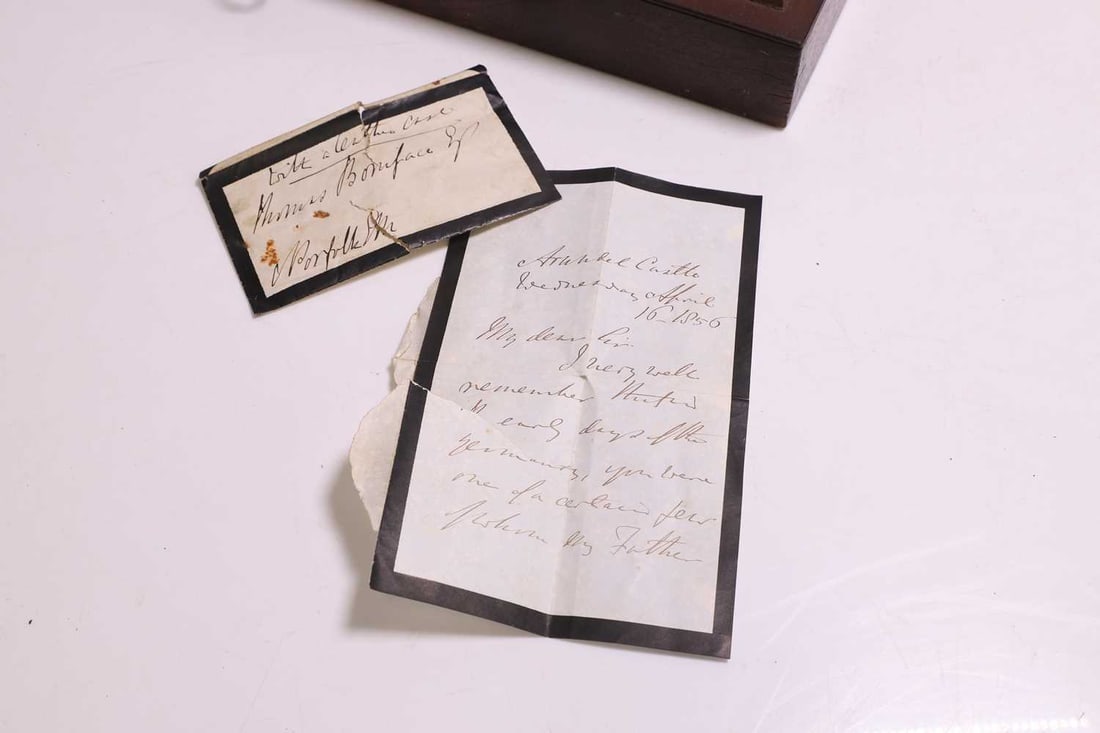 with a leather case
Thomas Boniface Esq
Norfolk
Arundel Castle
Wednesday April
16 1856
My dear Sir
I very well
remember that in
early days of the
yeomanry, you were
one of a certain few
of whom my Father